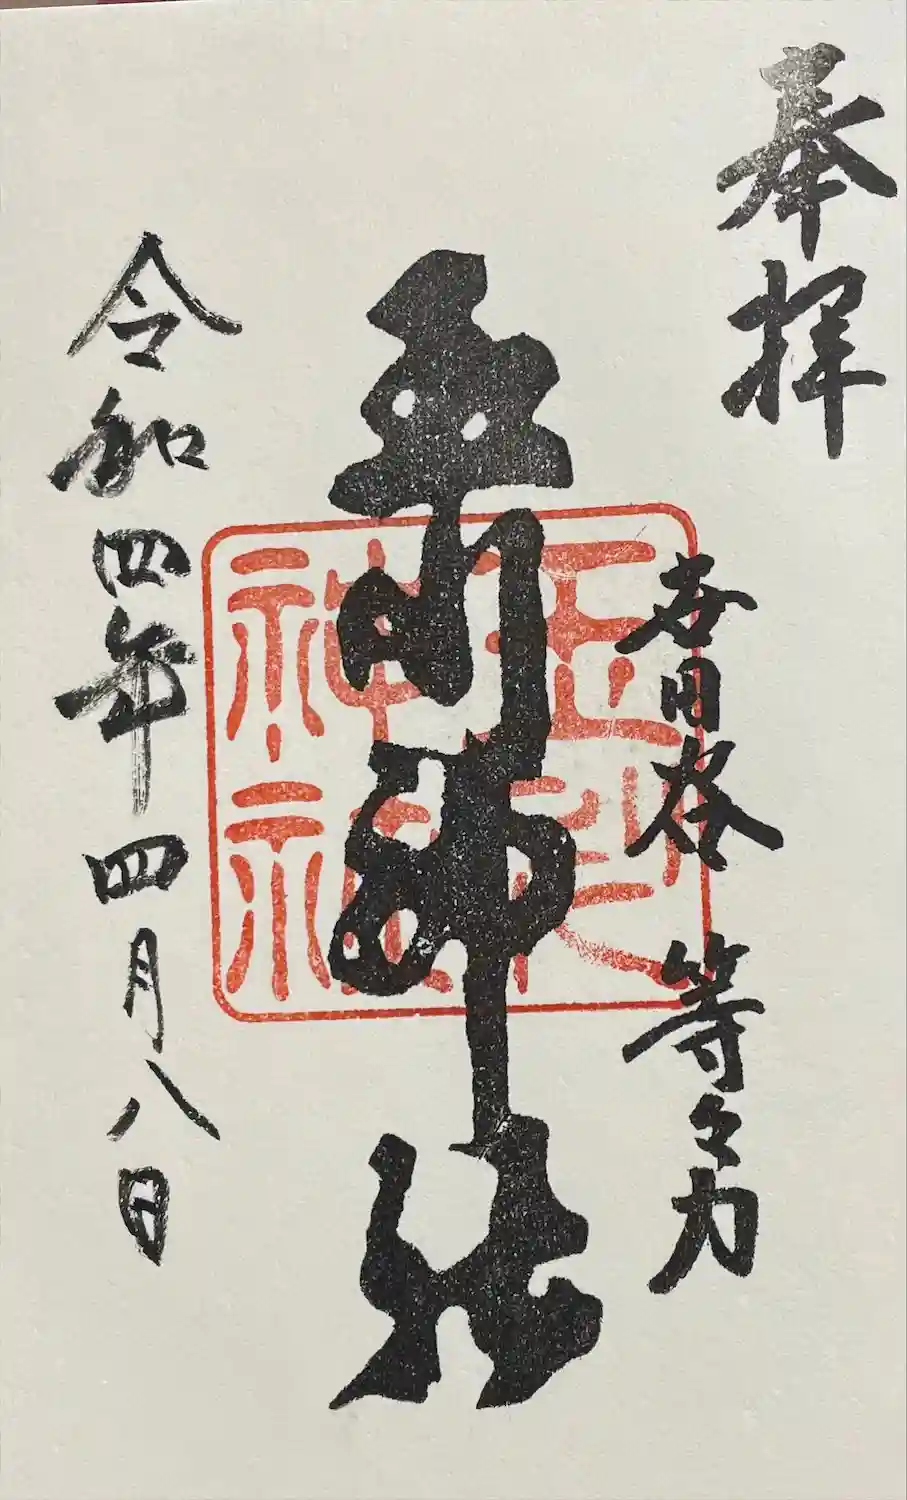 奉拝
世田谷 等々力
玉川神社
玉川神社
令和四年四月八日